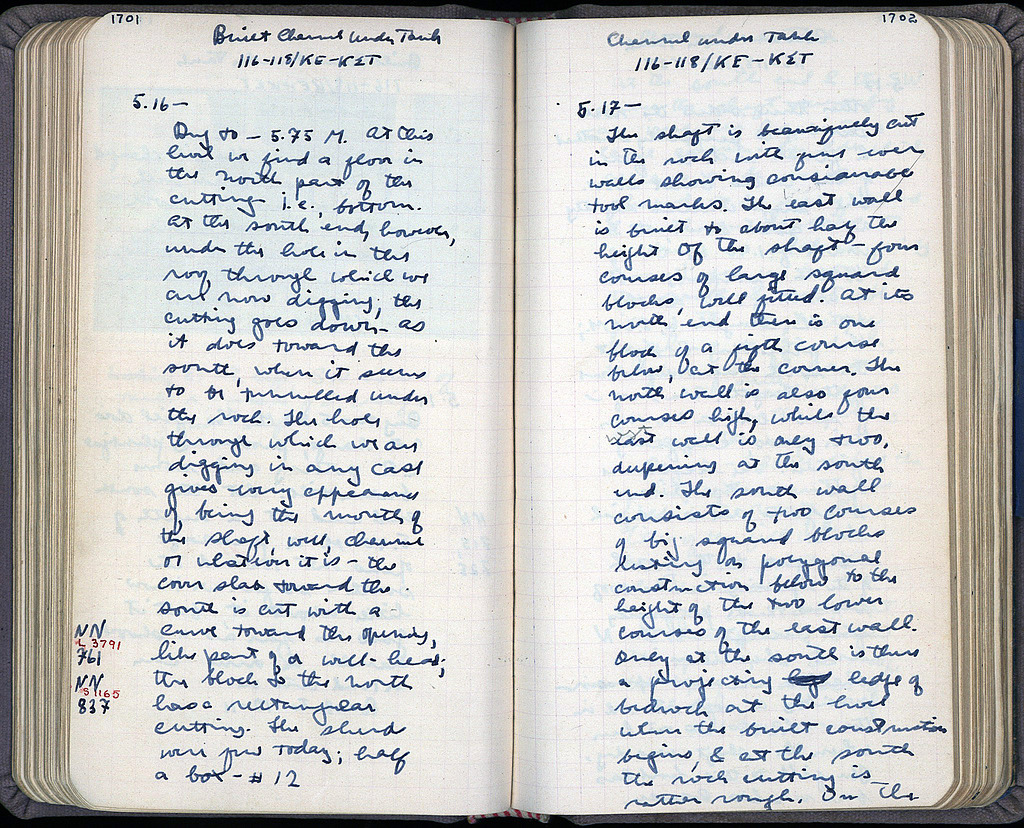 1701
Built Channel under Tank
116-118/ΚΕ-ΚΣΤ
5.16 —
Dug to - 5.75 M. At this
level we find a floor in
the north part of the
cutting i.e., bottom.
At the south end, however,
under the hole in the
roof through which we
are now digging, the
cutting goes down - as
it does toward the
south, where it seems
to be tunnelled under
the rock. The hole
through which we are
digging in any case
gives every appearance
of being the mouth of
the shaft, well, channel
or whatever it is - the
cover slab toward the
south is cut with a
curve toward the opening,
like part of a well-head;
the block to the north
has a rectangular
cutting. The sherds
were few today; half
a box - # 12
NN
L 3791
761
NN
S 1165
837
1702
Channel under Tank
116-118/ΚΕ-ΚΣΤ
5.17 —
The shaft is beautifully cut
in the rock with fine even
walls showing considerable
tool marks. The east wall
is built to about half the
height of the shaft - four
courses of large squared
blocks, well fitted. At its
north end there is one
block of a fifth course
below, at the corner. The
north wall is also four
courses high, while the
east wall is only two,
deepening at the south
end. The south wall
consists of two courses
of big squared blocks
resting on polygonal
construction below to the
height of the two lower
courses of the east wall.
Only at the south is there
a projecting ledge of
bedrock at the level
where the built construction
begins, & at the south
the rock cutting is
rather rough. On the